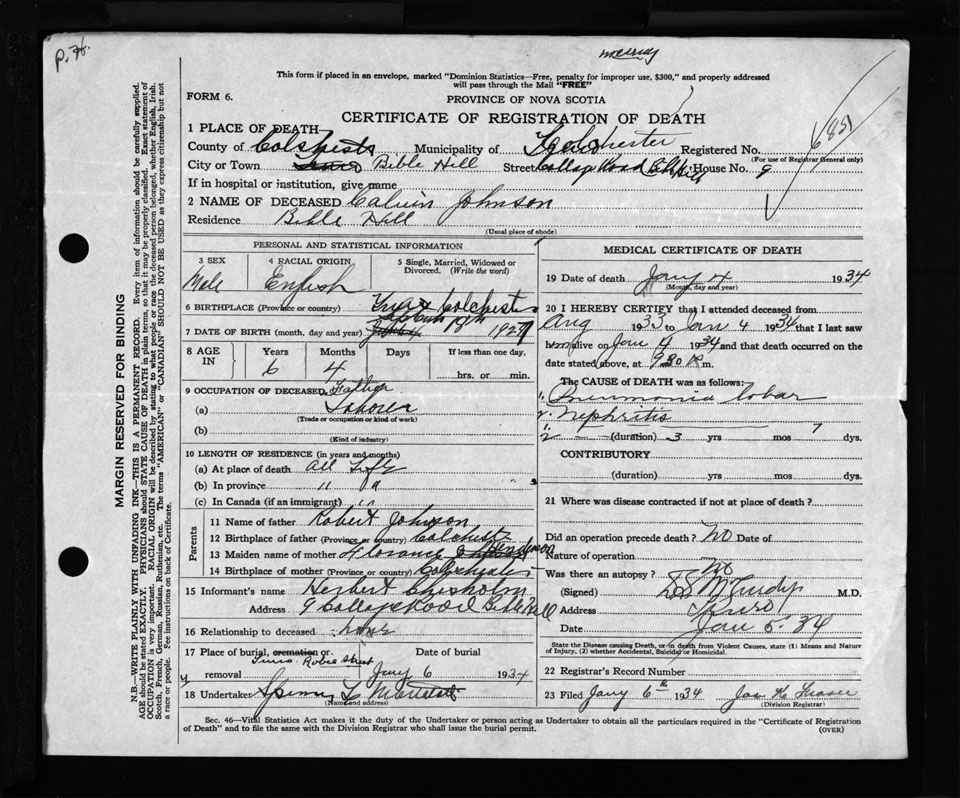 p. H.
This form if placed in an envelope, marked "Dominion Statistics—Free, penalty for improper use, $300," and properly addressed
will pass through the Mail "FREE"
FORM 6.
PROVINCE OF NOVA SCOTIA
CERTIFICATE OF REGISTRATION OF DEATH
1 PLACE OF DEATH
County of Colchester Municipality of Colchester Registered No.
(For use of Registrar General only)
City or Town Truro Bible Hill Street College Road Bible Hill House No. 9
If in hospital or institution, give name
2 NAME OF DECEASED Calvin Johnson
Residence Bible Hill
(Usual place of abode)
PERSONAL AND STATISTICAL INFORMATION
3 SEX Male
4 RACIAL ORIGIN English
5 Single, Married, Widowed or Divorced. (Write the word)
6 BIRTHPLACE (Province or country) Truro Colchester
7 DATE OF BIRTH (month, day and year) 18th 1927
8 AGE IN Years Months Days If less than one day,
6 4 hrs. or min.
9 OCCUPATION OF DECEASED Father
(a) Laborer
(Trade or occupation or kind of work)
(b)
(Kind of industry)
10 LENGTH OF RESIDENCE (in years and months)
(a) At place of death All Life
(b) In province " "
(c) In Canada (if an immigrant) " "
Parents
11 Name of father Robert Johnson
12 Birthplace of father (Province or country) Colchester
13 Maiden name of mother Florance Henderson
14 Birthplace of mother (Province or country) Colchester
15 Informant's name Herbert Chisholm
Address 9 College Road Bible Hill
16 Relationship to deceased none
17 Place of burial, cremation or removal Truro Robie Street
Date of burial Jany 6 1934
18 Undertaker Spinney
(Name and address)
MEDICAL CERTIFICATE OF DEATH
19 Date of death Jany 4 1934
(Month, day and year)
20 I HEREBY CERTIFY that I attended deceased from
Aug 1933 to Jan 4 1934 that I last saw
him alive on Jan 4 1934 and that death occurred on the
date stated above, at 930 m.
The CAUSE OF DEATH was as follows:
1. Pneumonia lobar
2. Nephritis
1. 7
2 (duration) 3 yrs mos dys.
CONTRIBUTORY
(duration) yrs mos dys.
21 Where was disease contracted if not at place of death?
Did an operation precede death? No Date of
Nature of operation
Was there an autopsy? No
(Signed) M.D.
Address Truro
Date Jan 5 34
State the Disease Causing Death, or in death from Violent Causes, state (1) Means and Nature
of Injury, (2) whether Accidental, Suicidal or Homicidal.
22 Registrar's Record Number
23 Filed Jany 6th 1934 Jas H Fraser
(Division Registrar)
Sec. 46—Vital Statistics Act makes it the duty of the Undertaker or person acting as Undertaker to obtain all the particulars required in the "Certificate of Registration
of Death" and to file the same with the Division Registrar who shall issue the burial permit.
(OVER)
MARGIN RESERVED FOR BINDING
N.B.—WRITE PLAINLY WITH UNFADING INK—THIS IS A PERMANENT RECORD. Every item of information should be carefully supplied.
AGE should be stated EXACTLY. PHYSICIANS should STATE CAUSE OF DEATH in plain terms, so that it may be properly classified. Exact statement of
OCCUPATION is very important. RACIAL ORIGIN will be described by stating to what people or race the deceased person belonged, whether English, Irish,
Scotch, French, German, Russian, Ruthenian, etc. The terms "AMERICAN" or "CANADIAN" SHOULD NOT BE USED as they express citizenship but not
a race or people. See instructions on back of Certificate.